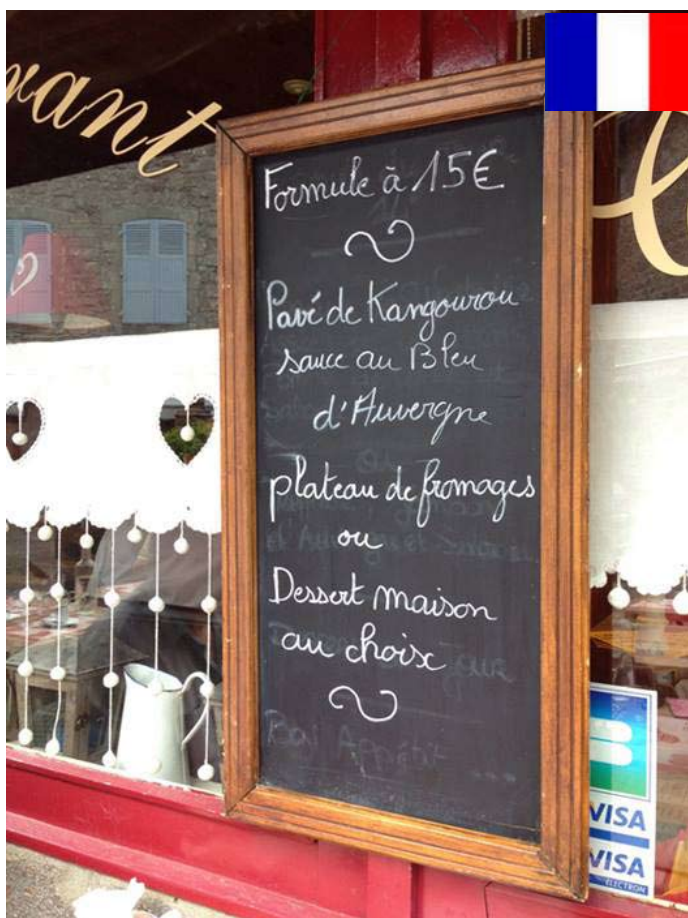 Formule à 15€
Pavé de Kangourou
sauce au Bleu
d'Auvergne
plateau de fromages
ou
Dessert maison
au choix
Bon Appétit ...
VISA
VISA
ELECTRON